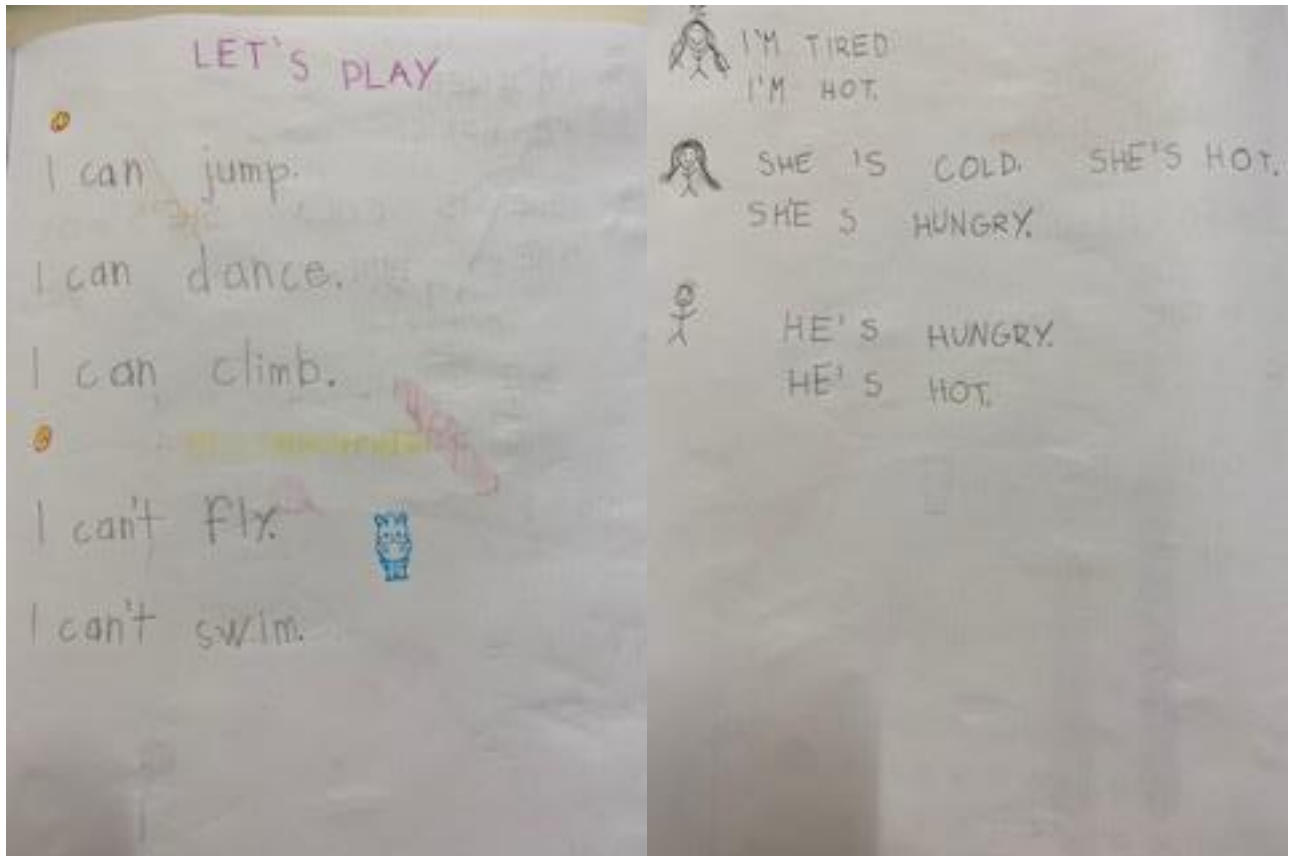 LET'S PLAY
I can jump.
I can dance.
I can climb.
I can't fly.
I can't swim.
I'M TIRED
I'M HOT.
SHE 'S COLD. SHE'S HOT.
SHE S HUNGRY.
HE'S HUNGRY.
HE'S HOT.